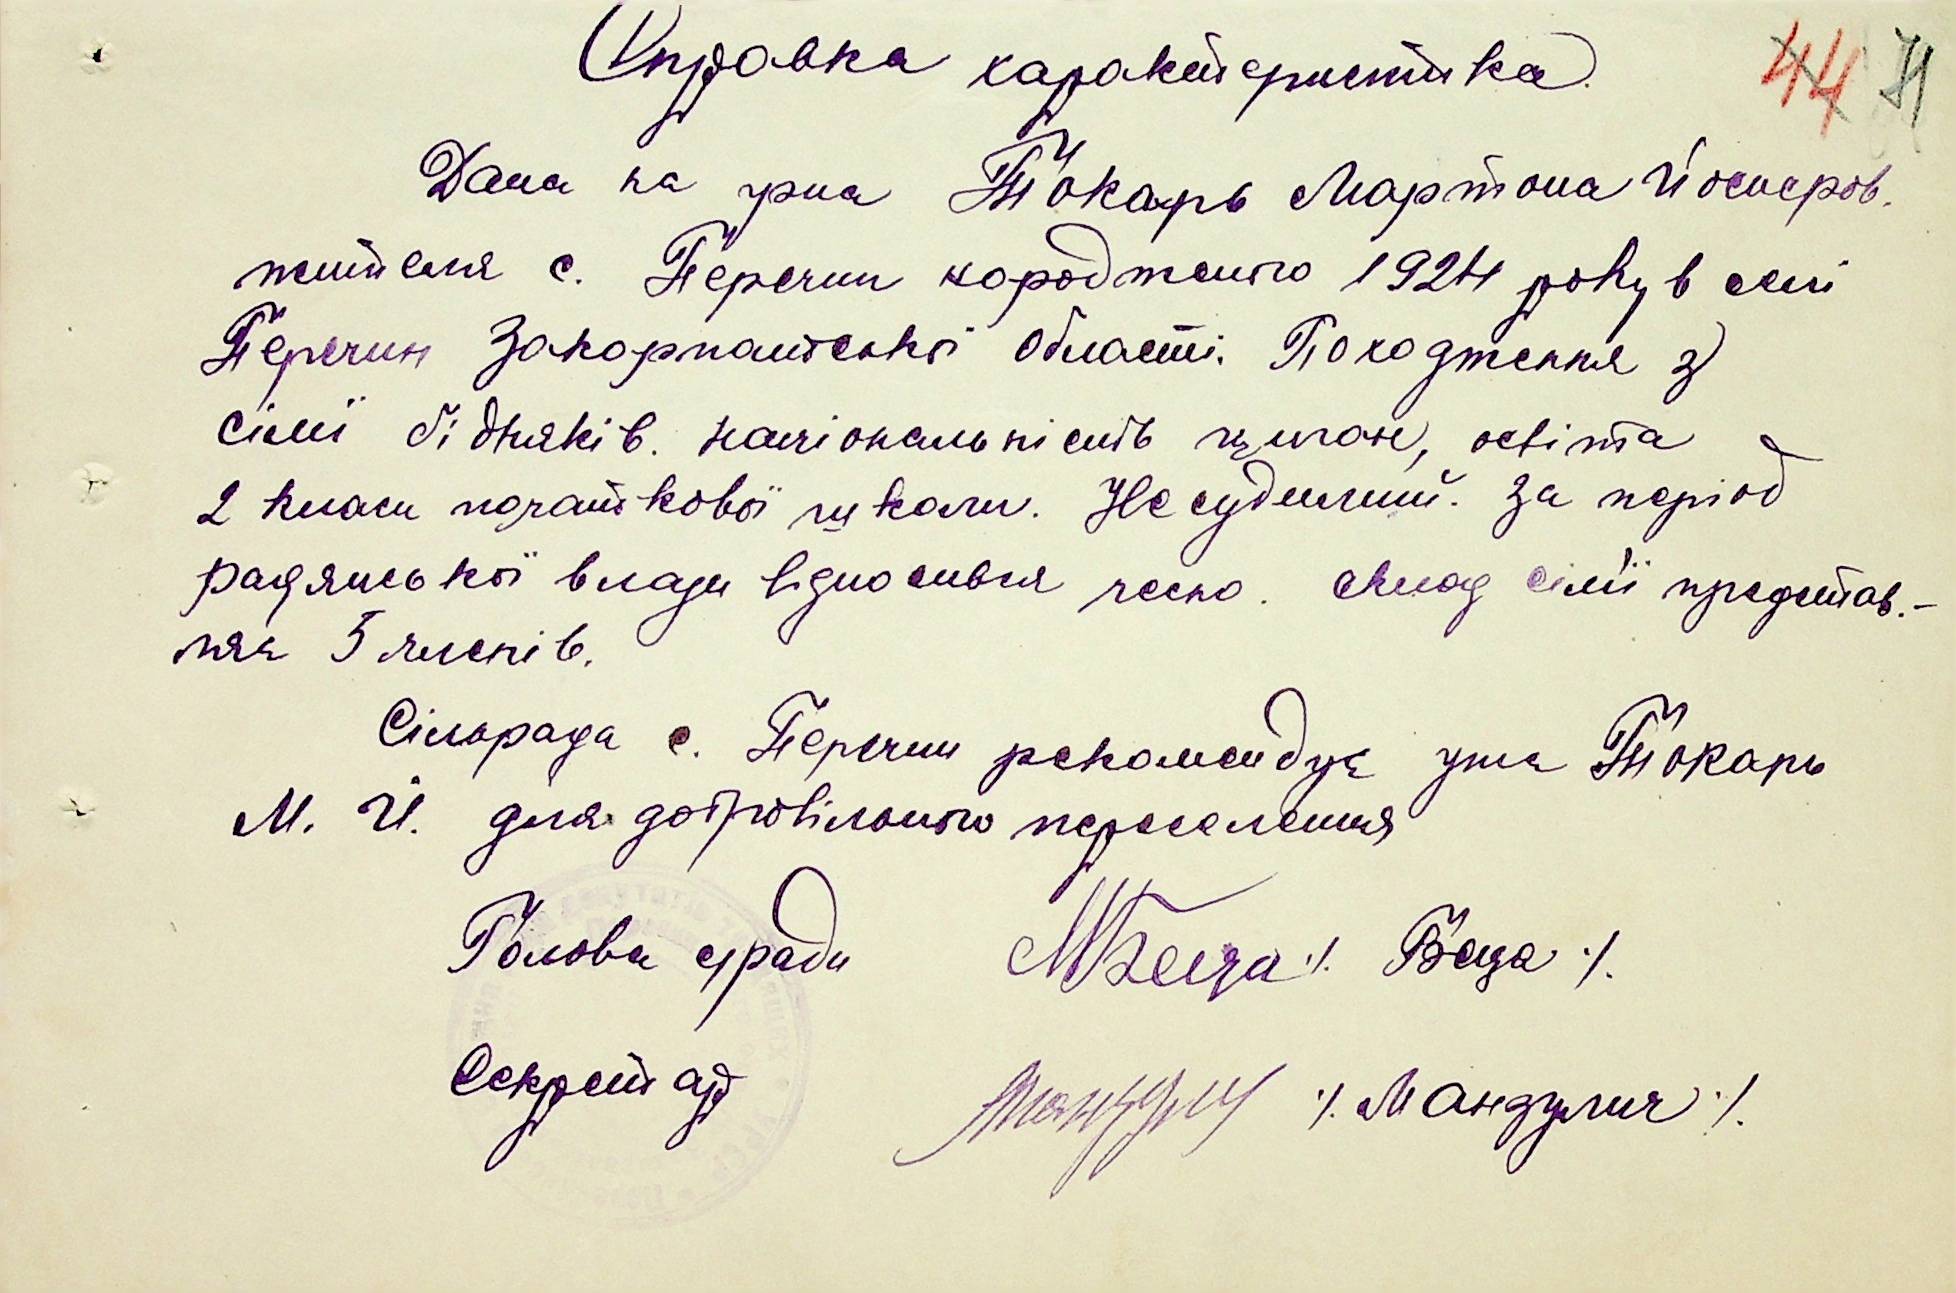 Справка характеристика.
44 71
Дана на гр-на Токарь Мартона Йосиров.
жителя с. Перечин народженого 1924 року в селі
Перечин Закарпатської області. Походження з
сімї бідняків. Національність циган, освіта
2 класи початкової школи. Не судимий. За період
радянської влади відносився чесно. Склад сімї представ.-
ляє 5 членів.
Сільрада с. Перечин рекомендує гр-на Токарь
М. Й. для добровільного переселення
Голова с/ради МБеца ./. Беца ./.
Секретар ./. Манзулич ./.